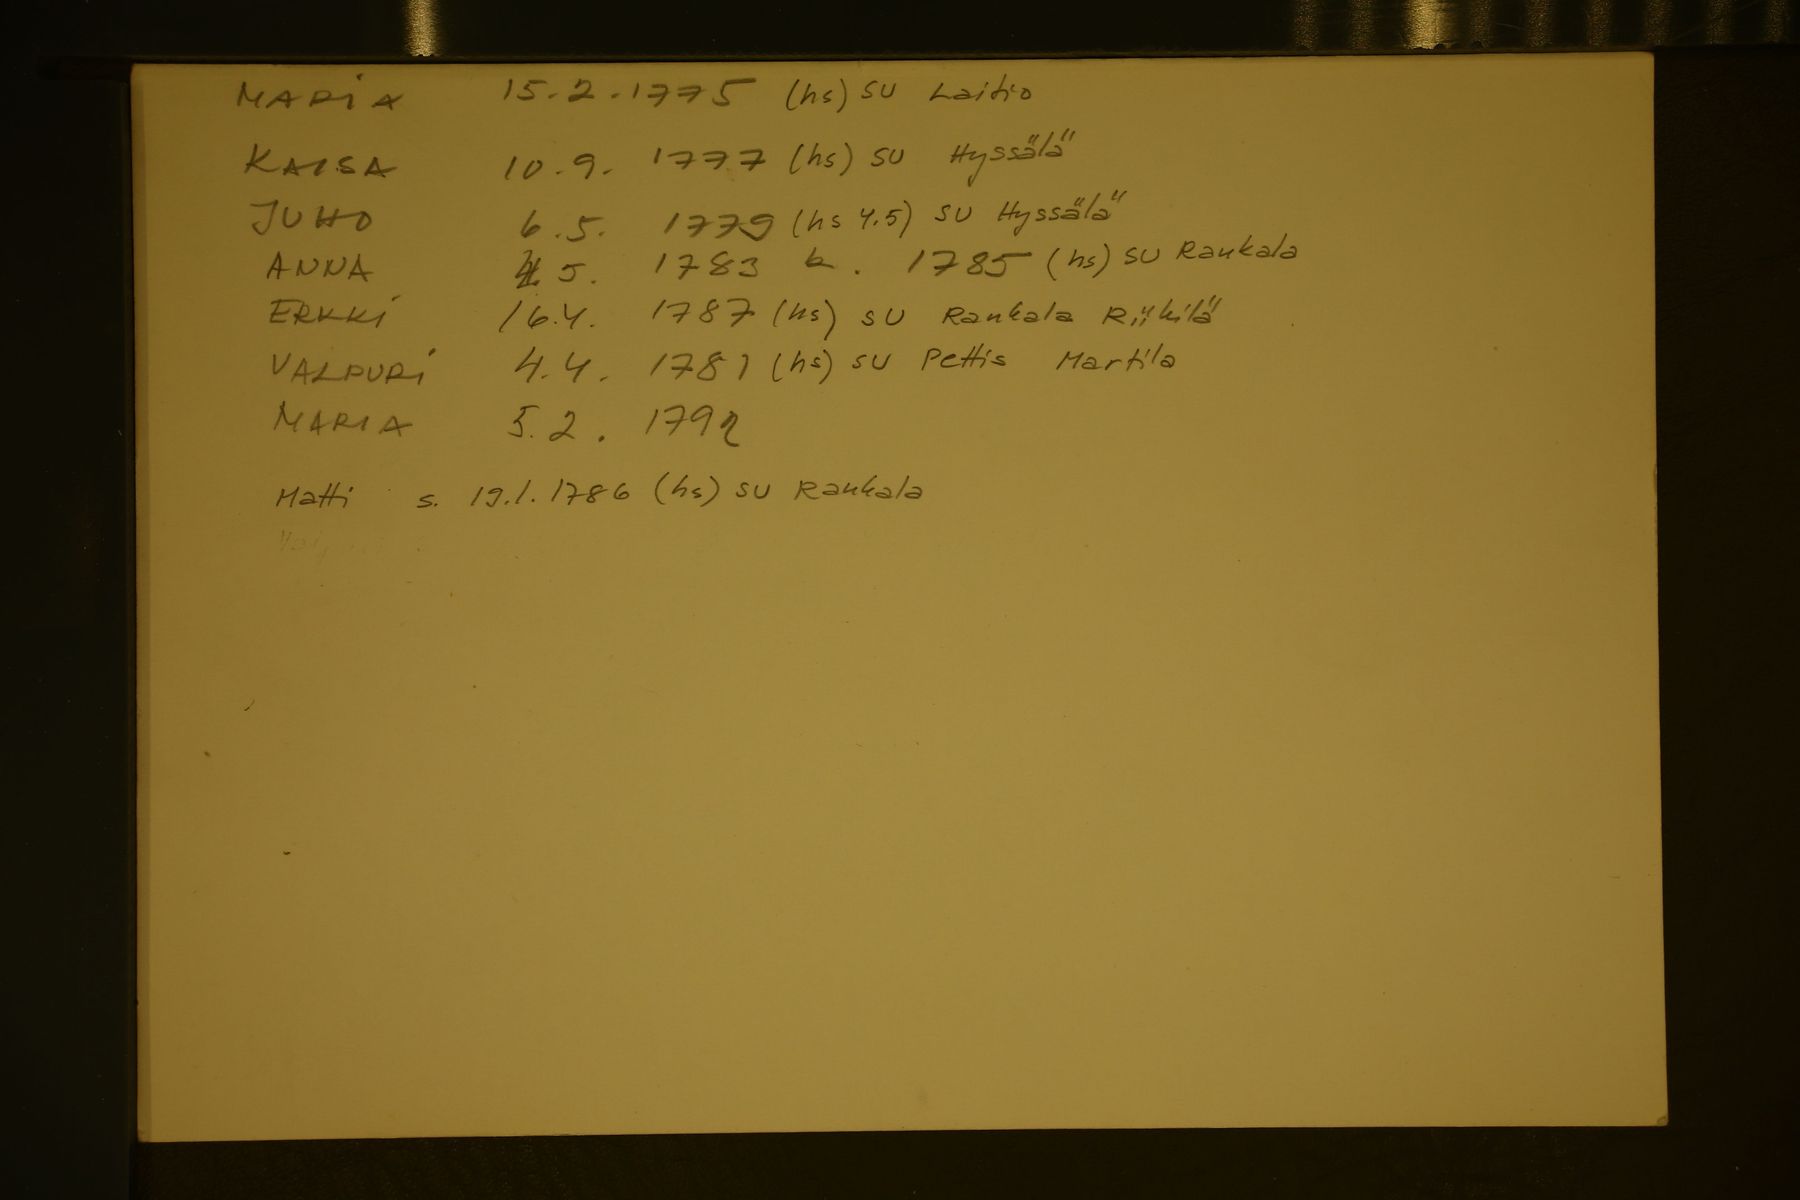 MARIA 15.2.1775 (hs) SU Laitio
KAISA 10.9. 1777 (hs) SU Hyssälä
JUHO 6.5. 1779 (hs 4.5) SU Hyssälä
ANNA 5. 1783 k. 1785 (hs) SU Raukala
ERKKI 16.4. 1787 (hs) SU Raukala Riikilä
VALPURI 4.4. 1781 (hs) SU Pettis Martila
MARIA 5.2. 1792
Matti s. 19.1.1786 (hs) SU Raukala